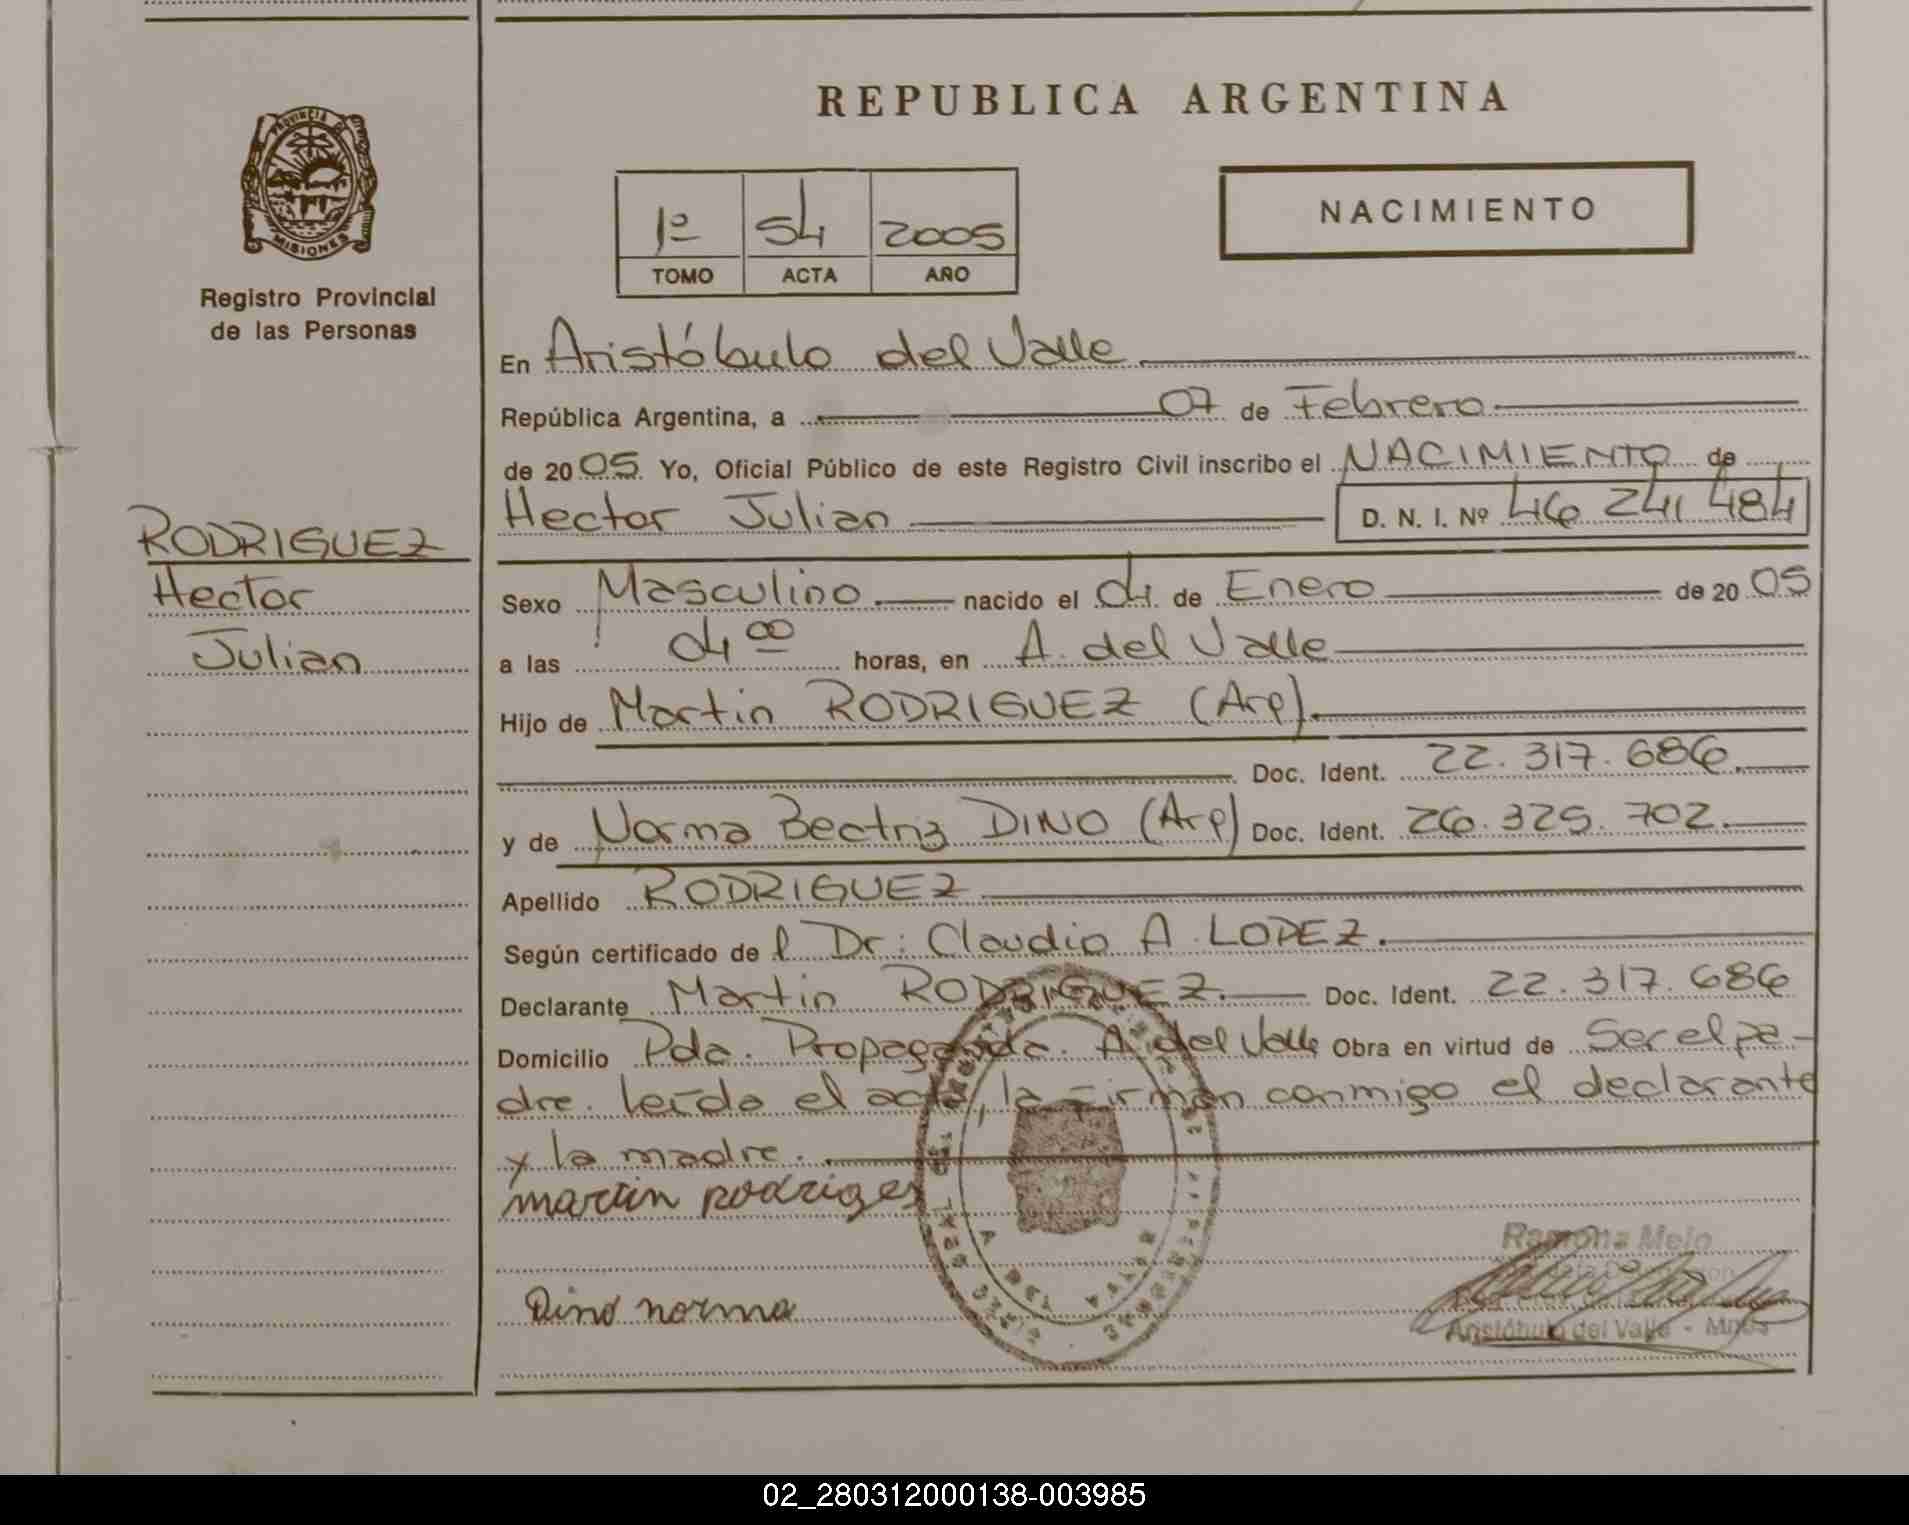 PROVINCIA DE
MISIONES
Registro Provincial
de las Personas
RODRIGUEZ
Hector
Julian
REPUBLICA ARGENTINA
1º 54 2005
TOMO ACTA AÑO
NACIMIENTO
En Aristóbulo del Valle
República Argentina, a 07 de Febrero
de 2005. Yo, Oficial Público de este Registro Civil inscribo el NACIMIENTO de
Hector Julian D. N. I. Nº 46 241 484
Sexo Masculino nacido el 04 de Enero de 2005
a las 04 00 horas, en A. del Valle
Hijo de Martin RODRIGUEZ (Arg).
Doc. Ident. 22.317.686.
y de Norma Beatriz DINO (Arg) Doc. Ident. 26.325.702.
Apellido RODRIGUEZ
Según certificado de l Dr: Claudio A. LOPEZ.
Declarante Martin RODRIGUEZ. Doc. Ident. 22.317.686
Domicilio Pda. Propaganda. A. del Valle Obra en virtud de Ser el pa-
dre. Leída el acta, la firman conmigo el declarante
y la madre.
martin rodriges
Dino norma
Ramona Melo
Aristóbulo del Valle - Mnes
02_280312000138-003985